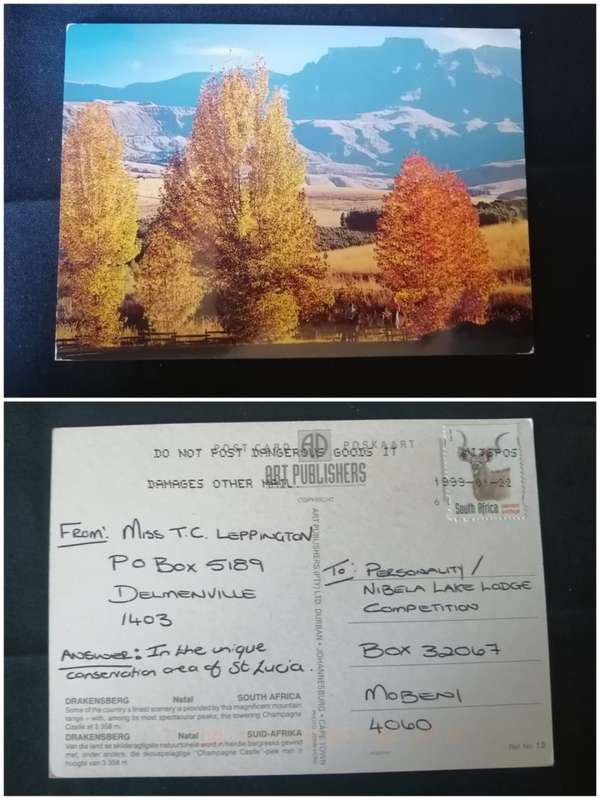 POST CARD AD POSKAART
DO NOT POST DANGEROUS GOODS IT
DAMAGES OTHER MAIL.
ART PUBLISHERS
COPYRIGHT
WITSPOS
1999-01-22
6
South Africa
From: Miss T.C. Leppington
PO Box 5189
Delmenville
1403
Answer: In the unique
conservation area of St Lucia.
ART PUBLISHERS (PTY) LTD DURBAN • JOHANNESBURG • CAPE TOWN
To: Personality/
Nibela Lake Lodge
Competition
Box 32067
Mobeni
4060
DRAKENSBERG Natal SOUTH AFRICA
Some of the country's finest scenery is provided by this magnificent mountain
range – with, among its most spectacular peaks, the towering Champagne
Castle at 3 358 m.
DRAKENSBERG Natal SUID-AFRIKA
Van die land se skilderagtigste natuurtonele word in hierdie bergreeks gevind
met, onder andere, die skouspelagtige "Champagne Castle"-piek met 'n
hoogte van 3 358 m.
Ref. No. 13